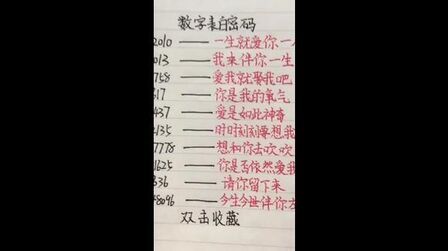 数字表白密码
2010——一生就爱你一
013——我来伴你一生
758——爱我就娶我吧
317——你是我的氧气
437——爱是如此神奇
2135——时时刻刻要想我
7778——想和你去吹吹
1625——你是否依然爱我
336——请你留下来
48096——今生今世伴你左
双击收藏